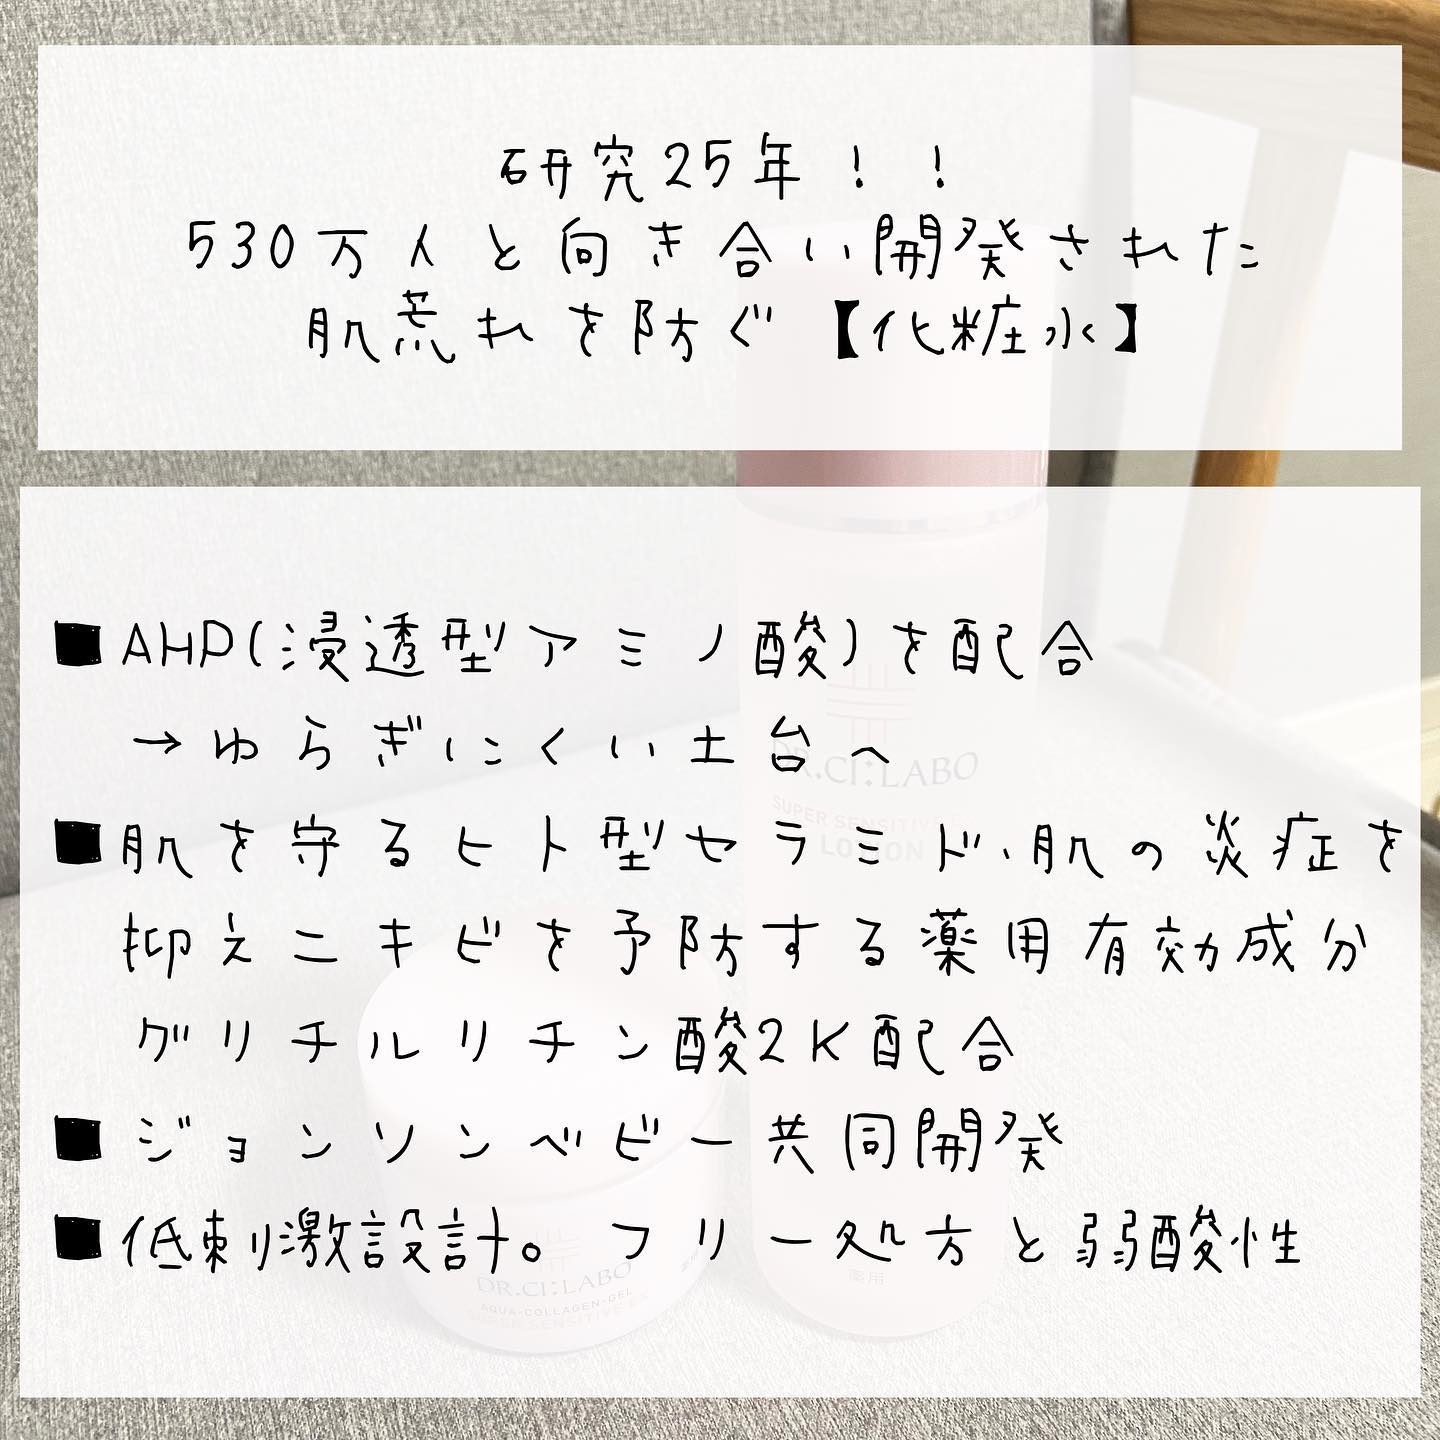 研究25年！！
530万人と向き合い開発された
肌荒れを防ぐ【化粧水】
■AHP(浸透型アミノ酸)を配合
→ゆらぎにくい土台へ
■肌を守るヒト型セラミド、肌の炎症を
抑えニキビを予防する薬用有効成分
グリチルリチン酸2K配合
■ジョンソンベビー共同開発
■低刺激設計。フリー処方と弱酸性
DR.CI:LABO
SUPER SENSITIVE
LOTION
薬用
DR.CI:LABO
AQUA-COLLAGEN-GEL